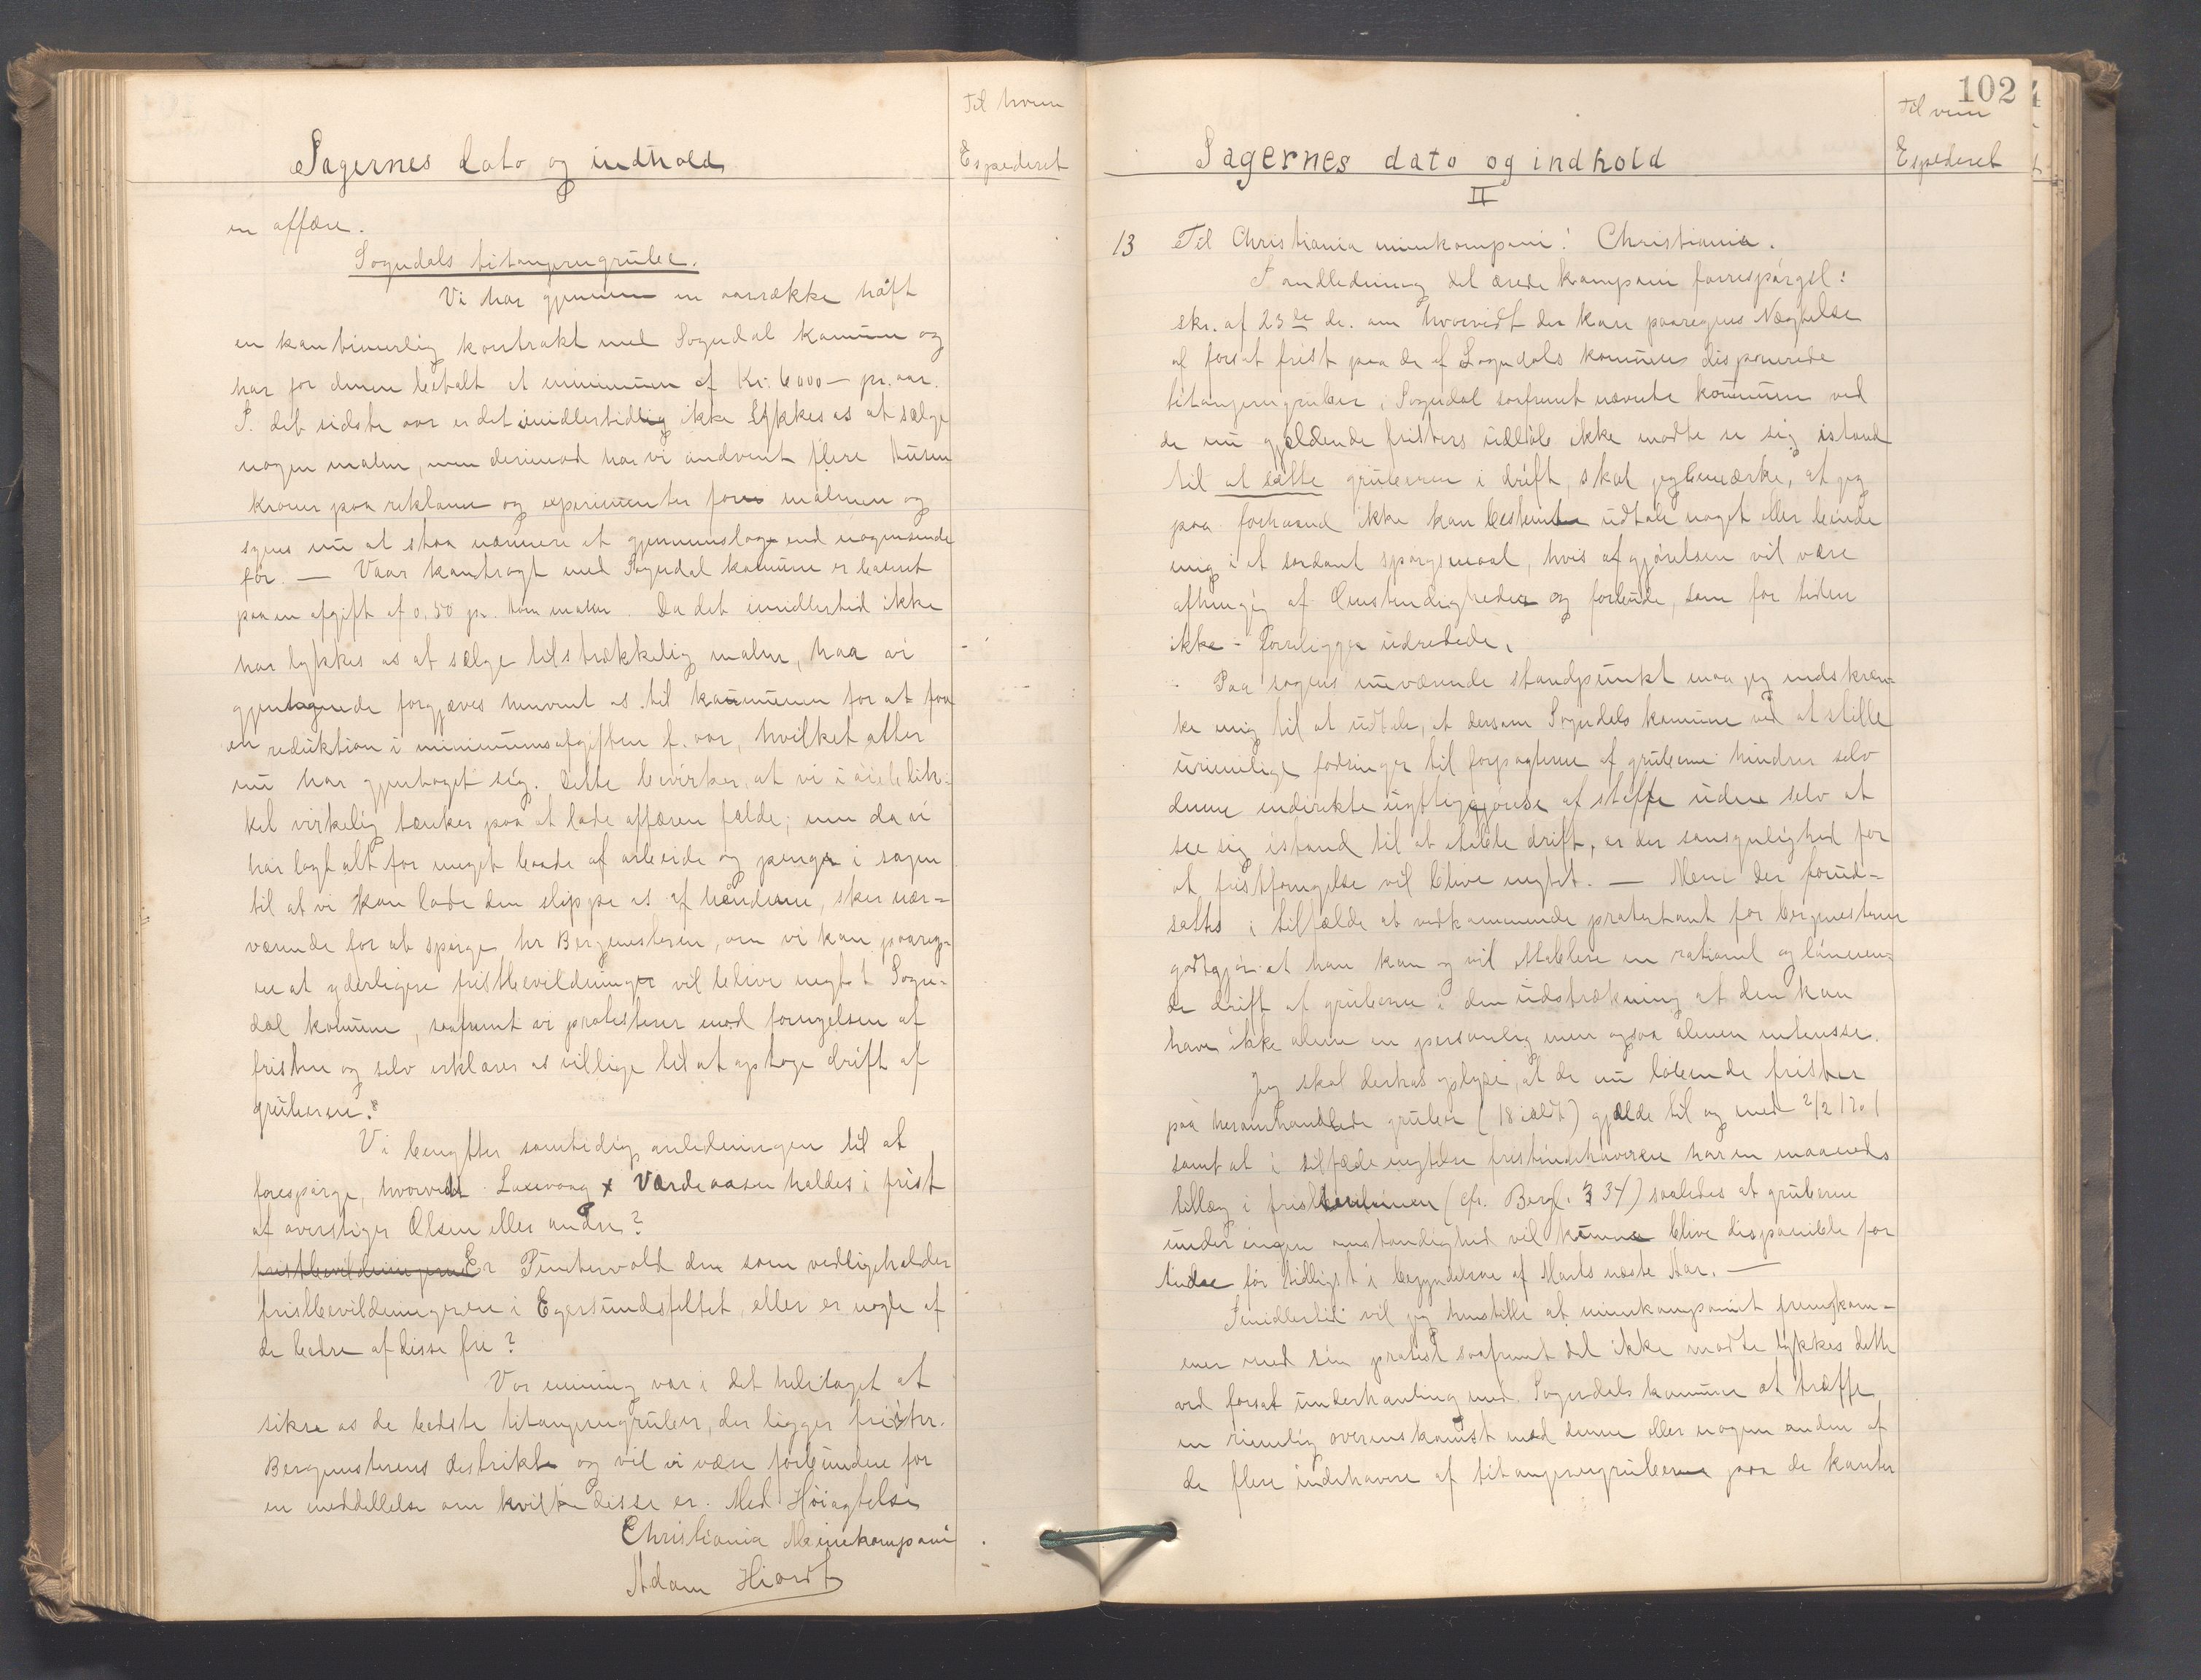 Til hvem
Sagernes dato og indhold
Expederet
en affære.
Sogndals titanjerngruber.
Vi har gjennem en aarrække haft
en kontinuerlig kontrakt med Sogndal komune og
har for denne betalt et minimum af Kr. 6000 — pr. aar.
I det sidste aar er det imidlertidlig ikke lykkes os at sælge
nogen malm, men derimod har vi andvent flere tusen
kroner paa reklame og experimenter for malmen og
synes nu at staa nærmere et gjennemslag end nogensinde
før. — Vaar kontragt med Sogndal komune er basert
paa en afgift af 0.50 pr. ton malm. Da det imidlertid ikke
har lykkes os at sælge tilstrækkelig malm, har vi
gjentagende forgjæves henvent os til kommunen for at faa
en reduktion i minimumsafgiften f. aar, hvilket atter
nu har gjentaget sig. Dette bevirker, at vi i øieblik-
ket virkelig tænker paa at lade affæren falde; men da vi
har lagt alt for meget baade af arbeide og penge i sagen
til at vi kan lade den slippe os af hænderne, sker nær-
værende for at spørge hr Bergmesteren, om vi kan paareg-
ne at yderligere fristbevildninger vil blive negtet Sogn-
dal komune, saafremt vi protesterer mod fornyelsen af
fristen og selv erklærer os villige til at optage drift af
gruberne?
Vi benytter samtidig anledningen til at
forespørge, hvorvidt Laxevaag x Vardeaasen holdes i frist
af overstiger Olsen eller andre?
fristbevildningerne Er Puntervold den som vedligeholder
fristbevildningerne i Egersundsfeltet, eller er nogle af
de bedre af disse fri?
Vor mening var i det heletaget at
sikre os de bedste titanjerngruber, der ligger fri i hr.
Bergmesterens destrikt og vil vi være forbundne for
en meddellelse om hvilke disse er. Med Høiagtelse
Christiania Minekompani
Adam Hiorth
102
Til vem
Sagernes dato og indhold
Expederet
II
13 Til Christiania minekompani! Christiania.
I andledning det ærede kompani forrespørgsl:
skr. af 23de ds. om hvorvidt der kan paaregnes Nægtelse
af forsat frist paa de af Sogndals komune disponerede
titanjerngruber i Sogndal saafremt nævnte kommune ved
de nu gjældende fristers udløb ikke maatte se sig istand
til at sætte gruberne i drift, skal jeg bemærke, at jeg
paa forhaand ikke kan bestemt udtale noget eller binde
mig i et saadant spørgsmaal, hvis afgjørelsen vil være
afhengig af Omstendigheder og forbunde, som for tiden
ikke - foreligger udredede.
Paa sagens nuværende standpunkt maa jeg indskræn-
ke mig til at udtale, at dersom Sogndals komune ved at stille
urimelige fodringer til forpagterne af gruberne hindrer selv
denne indirekte nyttiggjørelse af stoffe uden selv at
see sig istand til at etablere drift, er der sansynlighed for
at fristfornyelse vil blive negtet. — Men der forud-
sættes i tilfælde at vedkommende protestant for bergmesteren
godtgjør at han kan og vil ettablere en rationel og lønnen-
de drift af gruberne i den udstrækning at den kan
have ikke alene en personlig men ogsaa almen interesse.
Jeg skal derhos oplyse, at de nu løbende frister
paa heromhandlede gruber (18 ialdt) gjælde til og med 2/2 1901
samt at i tilfælde negtelse fristindehaveren har en maaneds
tillæg i fristterminen (cfr. Bergl. § 34) saaledes at gruberne
under ingen omstændighed vil kunne blive disponible for
tredie før tidligst i begyndelsen af Marts næste Aar. —
Imidlertid vil jeg henstille at minekompaniet fremkom-
mer med sin protest saafremt det ikke maatte lykkes dette
ved forsat underhanling med Sogndals komune at træffe
en rimelig overenskomst med denne eller nogen anden af
de flere indehavere af titanjerngruberne paa de kanter